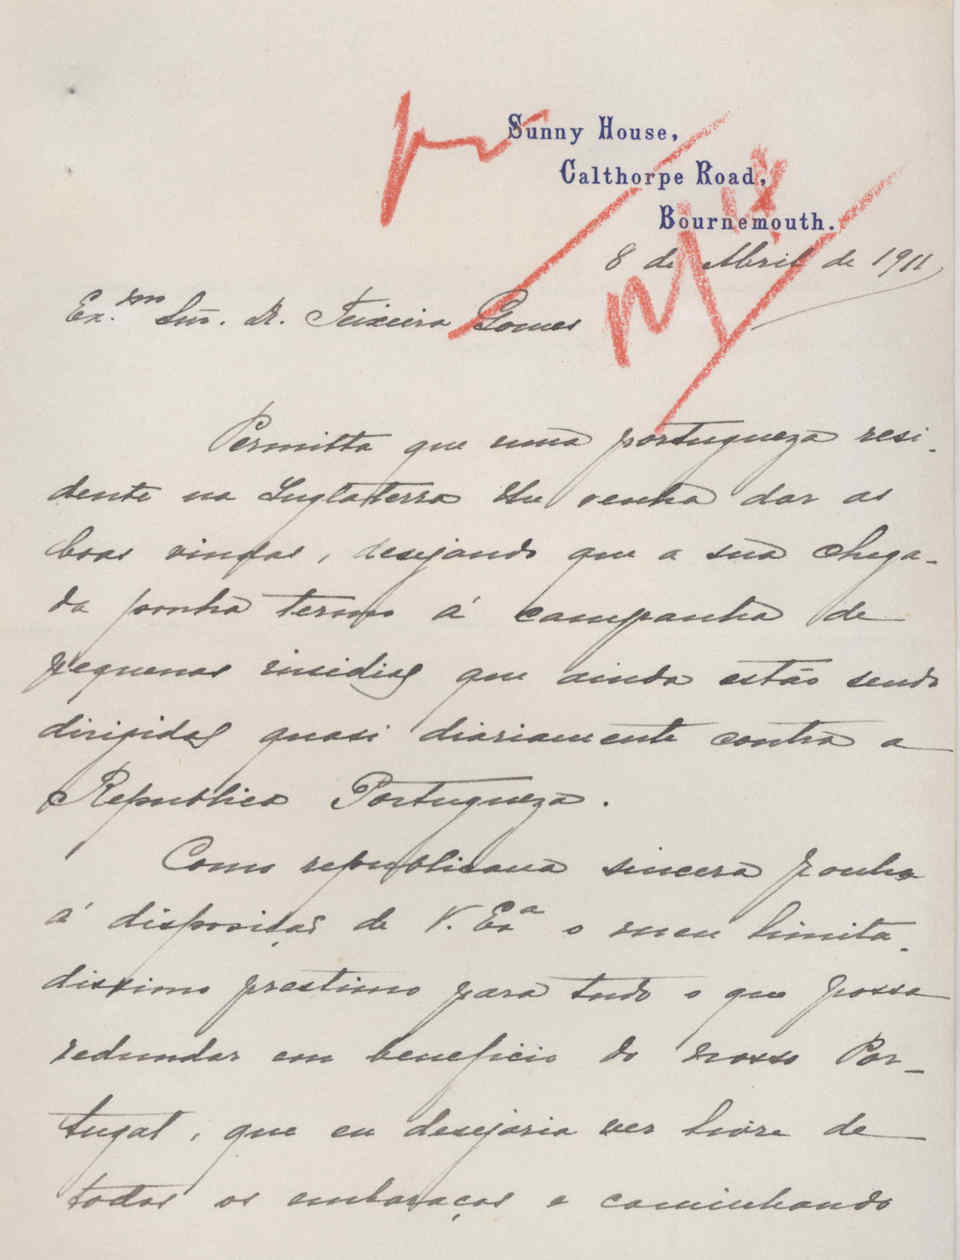 Sunny House,
Calthorpe Road,
Bournemouth.
8 de Abril de 1911
Ex.mo Snr. Dr. Teixeira Gomes
Permitta que uma portugueza resi-
dente na Inglaterra lhe venha dar as
boas vindas, desejando que a sua chega-
da ponha termo á campanha de
pequenas insidias que ainda estão sendo
dirigidas quasi diariamente contra a
Republica Portugueza.
Como republicana sincera ponho
á disposição de V. Exa o meu limita-
dissimo prestimo para tudo o que possa
redundar em beneficio do nosso Por-
tugal, que eu desejaria ver livre de
todos os embaraços e caminhando